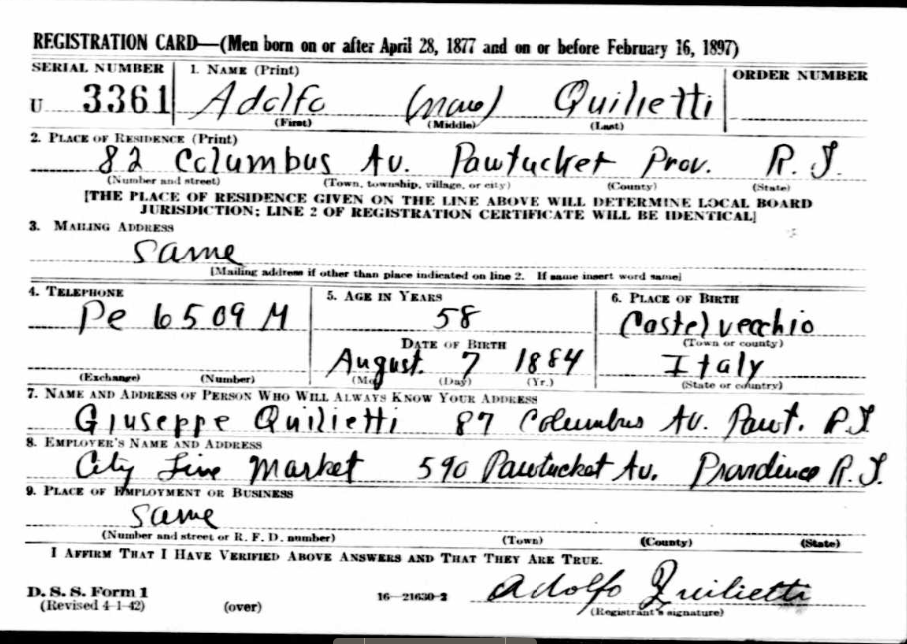 REGISTRATION CARD—(Men born on or after April 28, 1877 and on or before February 16, 1897)
SERIAL NUMBER 1. NAME (Print) ORDER NUMBER
U 3361 Adolfo (none) Quilietti
(First) (Middle) (Last)
2. PLACE OF RESIDENCE (Print)
82 Columbus Av. Pawtucket Prov. R.I.
(Number and street) (Town, township, village, or city) (County) (State)
[THE PLACE OF RESIDENCE GIVEN ON THE LINE ABOVE WILL DETERMINE LOCAL BOARD
JURISDICTION; LINE 2 OF REGISTRATION CERTIFICATE WILL BE IDENTICAL]
3. MAILING ADDRESS
Same
[Mailing address if other than place indicated on line 2. If same insert word same]
4. TELEPHONE 5. AGE IN YEARS 6. PLACE OF BIRTH
Pe 6509 M 58 Castelvecchio
DATE OF BIRTH (Town or county)
August 7 1884 Italy
(Exchange) (Number) (Mo.) (Day) (Yr.) (State or country)
7. NAME AND ADDRESS OF PERSON WHO WILL ALWAYS KNOW YOUR ADDRESS
Giuseppe Quilietti 87 Columbus Av. Pawt. R.I
8. EMPLOYER'S NAME AND ADDRESS
City Line Market 590 Pawtucket Av. Providence R.I.
9. PLACE OF EMPLOYMENT OR BUSINESS
Same
(Number and street or R. F. D. number) (Town) (County) (State)
I AFFIRM THAT I HAVE VERIFIED ABOVE ANSWERS AND THAT THEY ARE TRUE.
D. S. S. Form 1 Adolfo Quilietti
(Revised 4-1-42) (over) 16—21630-2 (Registrant's signature)